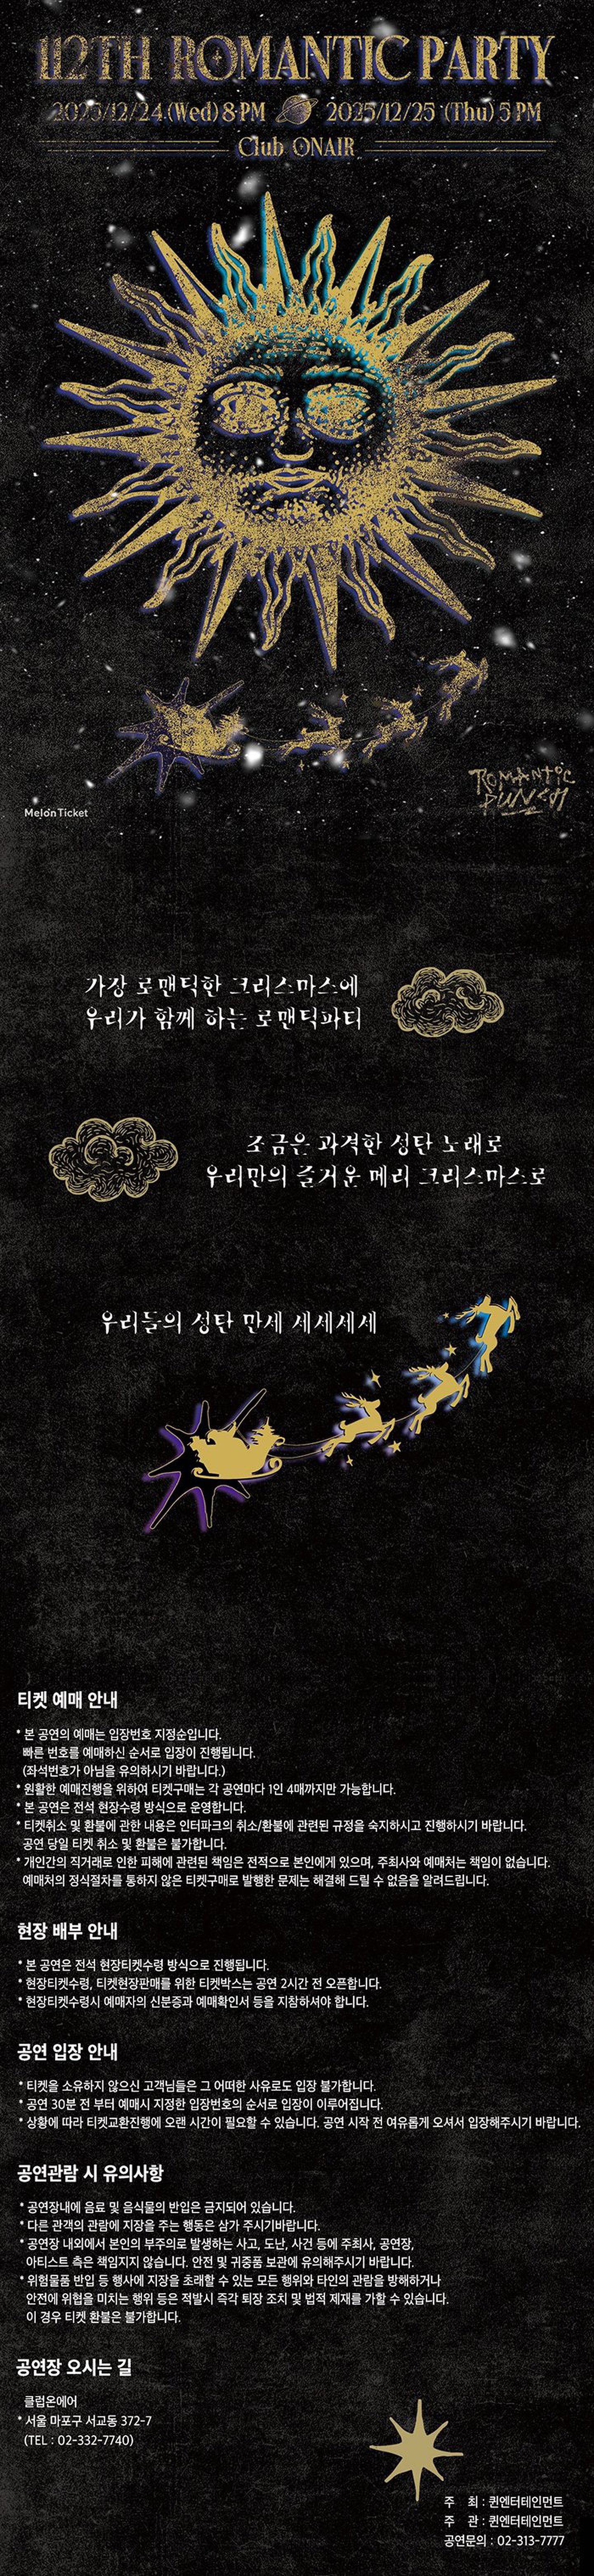 112TH ROMANTIC PARTY
2025/12/24 (Wed) 8 PM 2025/12/25 (Thu) 5 PM
Club ONAIR
ROMANTIC
PUNCH
Melon Ticket
가장 로맨틱한 크리스마스에
우리가 함께 하는 로맨틱파티
조금은 과격한 성탄 노래로
우리만의 즐거운 메리 크리스마스로
우리들의 성탄 만세 세세세세
티켓 예매 안내
* 본 공연의 예매는 입장번호 지정순입니다.
빠른 번호를 예매하신 순서로 입장이 진행됩니다.
(좌석번호가 아님을 유의하시기 바랍니다.)
* 원활한 예매진행을 위하여 티켓구매는 각 공연마다 1인 4매까지만 가능합니다.
* 본 공연은 전석 현장수령 방식으로 운영합니다.
* 티켓취소 및 환불에 관한 내용은 인터파크의 취소/환불에 관련된 규정을 숙지하시고 진행하시기 바랍니다.
공연 당일 티켓 취소 및 환불은 불가합니다.
* 개인간의 직거래로 인한 피해에 관련된 책임은 전적으로 본인에게 있으며, 주최사와 예매처는 책임이 없습니다.
예매처의 정식절차를 통하지 않은 티켓구매로 발행한 문제는 해결해 드릴 수 없음을 알려드립니다.
현장 배부 안내
* 본 공연은 전석 현장티켓수령 방식으로 진행됩니다.
* 현장티켓수령, 티켓현장판매를 위한 티켓박스는 공연 2시간 전 오픈합니다.
* 현장티켓수령시 예매자의 신분증과 예매확인서 등을 지참하셔야 합니다.
공연 입장 안내
* 티켓을 소유하지 않으신 고객님들은 그 어떠한 사유로도 입장 불가합니다.
* 공연 30분 전 부터 예매시 지정한 입장번호의 순서로 입장이 이루어집니다.
* 상황에 따라 티켓교환진행에 오랜 시간이 필요할 수 있습니다. 공연 시작 전 여유롭게 오셔서 입장해주시기 바랍니다.
공연관람 시 유의사항
* 공연장내에 음료 및 음식물의 반입은 금지되어 있습니다.
* 다른 관객의 관람에 지장을 주는 행동은 삼가 주시기바랍니다.
* 공연장 내외에서 본인의 부주의로 발생하는 사고, 도난, 사건 등에 주최사, 공연장,
아티스트 측은 책임지지 않습니다. 안전 및 귀중품 보관에 유의해주시기 바랍니다.
* 위험물품 반입 등 행사에 지장을 초래할 수 있는 모든 행위와 타인의 관람을 방해하거나
안전에 위협을 미치는 행위 등은 적발시 즉각 퇴장 조치 및 법적 제재를 가할 수 있습니다.
이 경우 티켓 환불은 불가합니다.
공연장 오시는 길
클럽온에어
* 서울 마포구 서교동 372-7
(TEL : 02-332-7740)
주 최 : 퀸엔터테인먼트
주 관 : 퀸엔터테인먼트
공연문의 : 02-313-7777